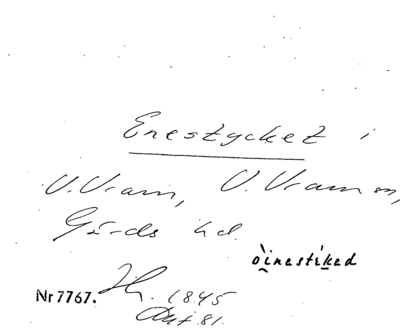 Enestycket i
V. Vram, V. Vram sn,
Gärds hd.
òinestiked
Nr 7767. 1845